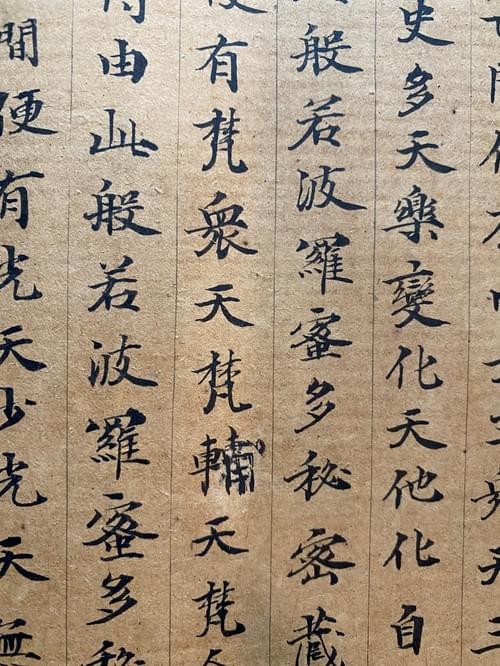 天三
史多天樂變化天他化自
般若波羅蜜多秘密藏
有梵衆天梵輔天梵
由此般若波羅蜜多秘
間便有光天少光天無